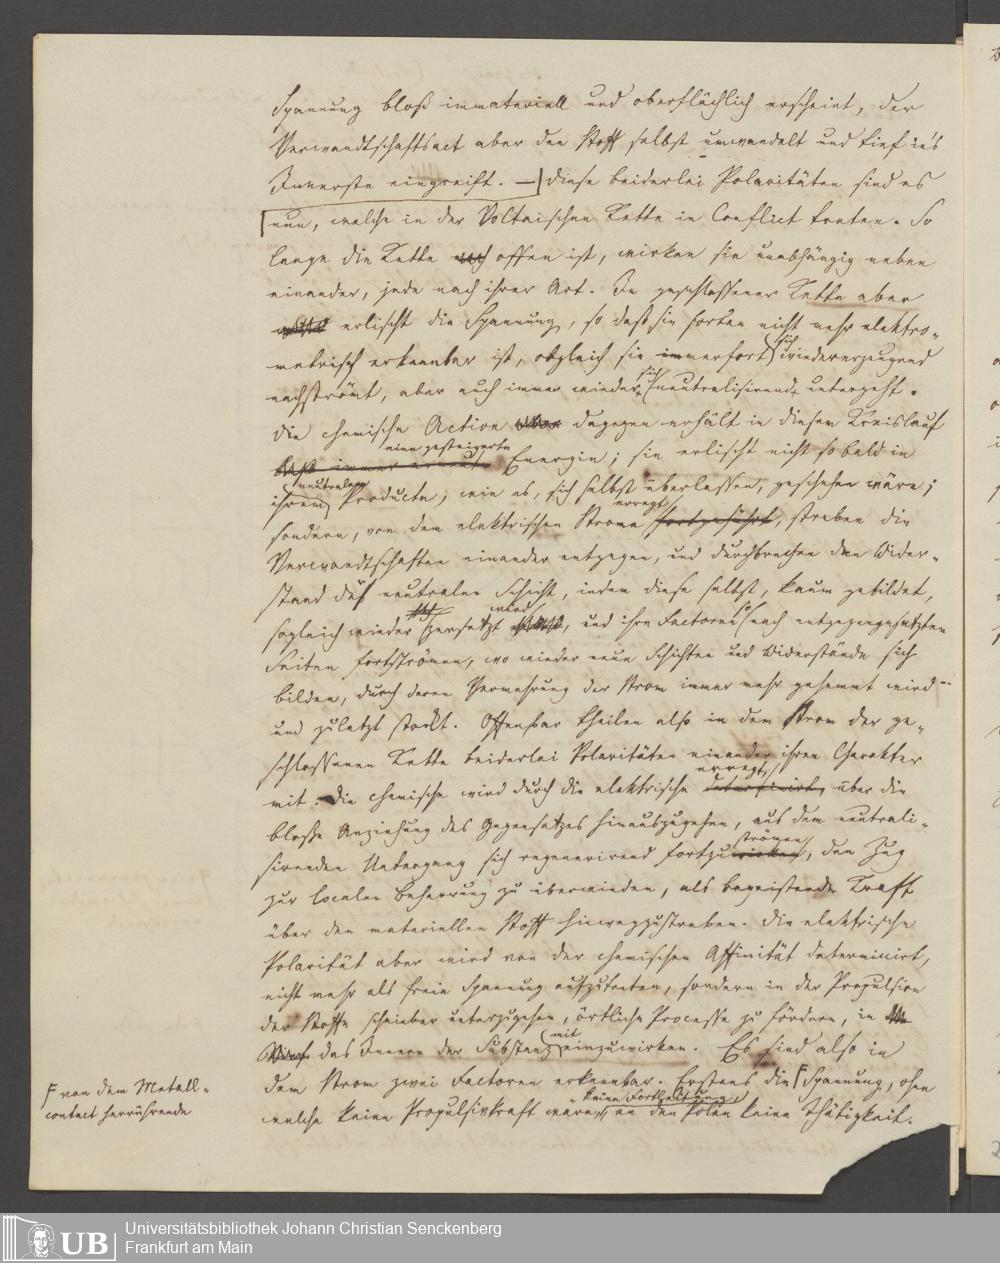 Spannung bloß immateriell und oberflächlich erscheint, der
Verwandtschaftsact aber den Stoff selbst umwandelt und tief in's
Innerste eingreift. — diese beiderlei Polaritäten sind es
nun, welche in der Voltaischen Kette in Conflict treten. So
lange die Kette offen ist, wirken sie unabhängig neben
einander, jede nach ihrer Art. In geschlossener Kette aber
erlischt die Spannung, so daß sie fortan nicht mehr elektro-
metrisch erkennbar ist, obgleich sie immerfort sich wiedererzeugend
nachströmt, aber auch immer wieder sich neutralisirend untergeht.
Die chemische Action aber dagegen erhält in diesem Kreislauf
eine gesteigerte Energie; sie erlischt nicht so bald in
ihrem neutralen Producte, wie es, sich selbst überlassen, geschehen wäre;
sondern, von dem elektrischen Strome erregt fortgeführt, streben die
Verwandtschaften einander entgegen, und durchbrechen den Wider-
stand der neutralen Schicht, indem diese selbst, kaum gebildet,
sogleich wieder zersetzt wird, und ihre Factoren so nach entgegengesetzten
Seiten fortströmen, wo wieder neue Schichten und Widerstände sich
bilden, durch deren Vermehrung der Strom immer mehr gehemmt wird
und zuletzt stockt. Offenbar theilen also in dem Strom der ge-
schlossenen Kette beiderlei Polaritäten einander ihren Charakter
mit. Die chemische wird durch die elektrische erregt, determinirt, über die
bloße Anziehung des Gegensatzes hinauszugehen, aus dem neutrali-
sirenden Untergang sich regenerirend fortzuströmen, den Zug
zur localen Beharrung zu überwinden, als begeistende Kraft
über den materiellen Stoff hinwegzustreben. Die elektrische
Polarität aber wird von der chemischen Affinität determinirt,
nicht mehr als freie Spannung aufzutreten, sondern in der Propulsion
der Stoffe scheinbar unterzugehen, örtliche Processe zu fördern, in
das Innere der Substanz mit einzuwirken. Es sind also in
dem Strom zwei Factoren erkennbar. Erstens die Spannung, ohne
welche keine Propulsivkraft wäre, keine Fortleitung, an den Polen keine Thätigkeit.
von dem Metall-
contact herrührende
UB
Universitätsbibliothek Johann Christian Senckenberg
Frankfurt am Main